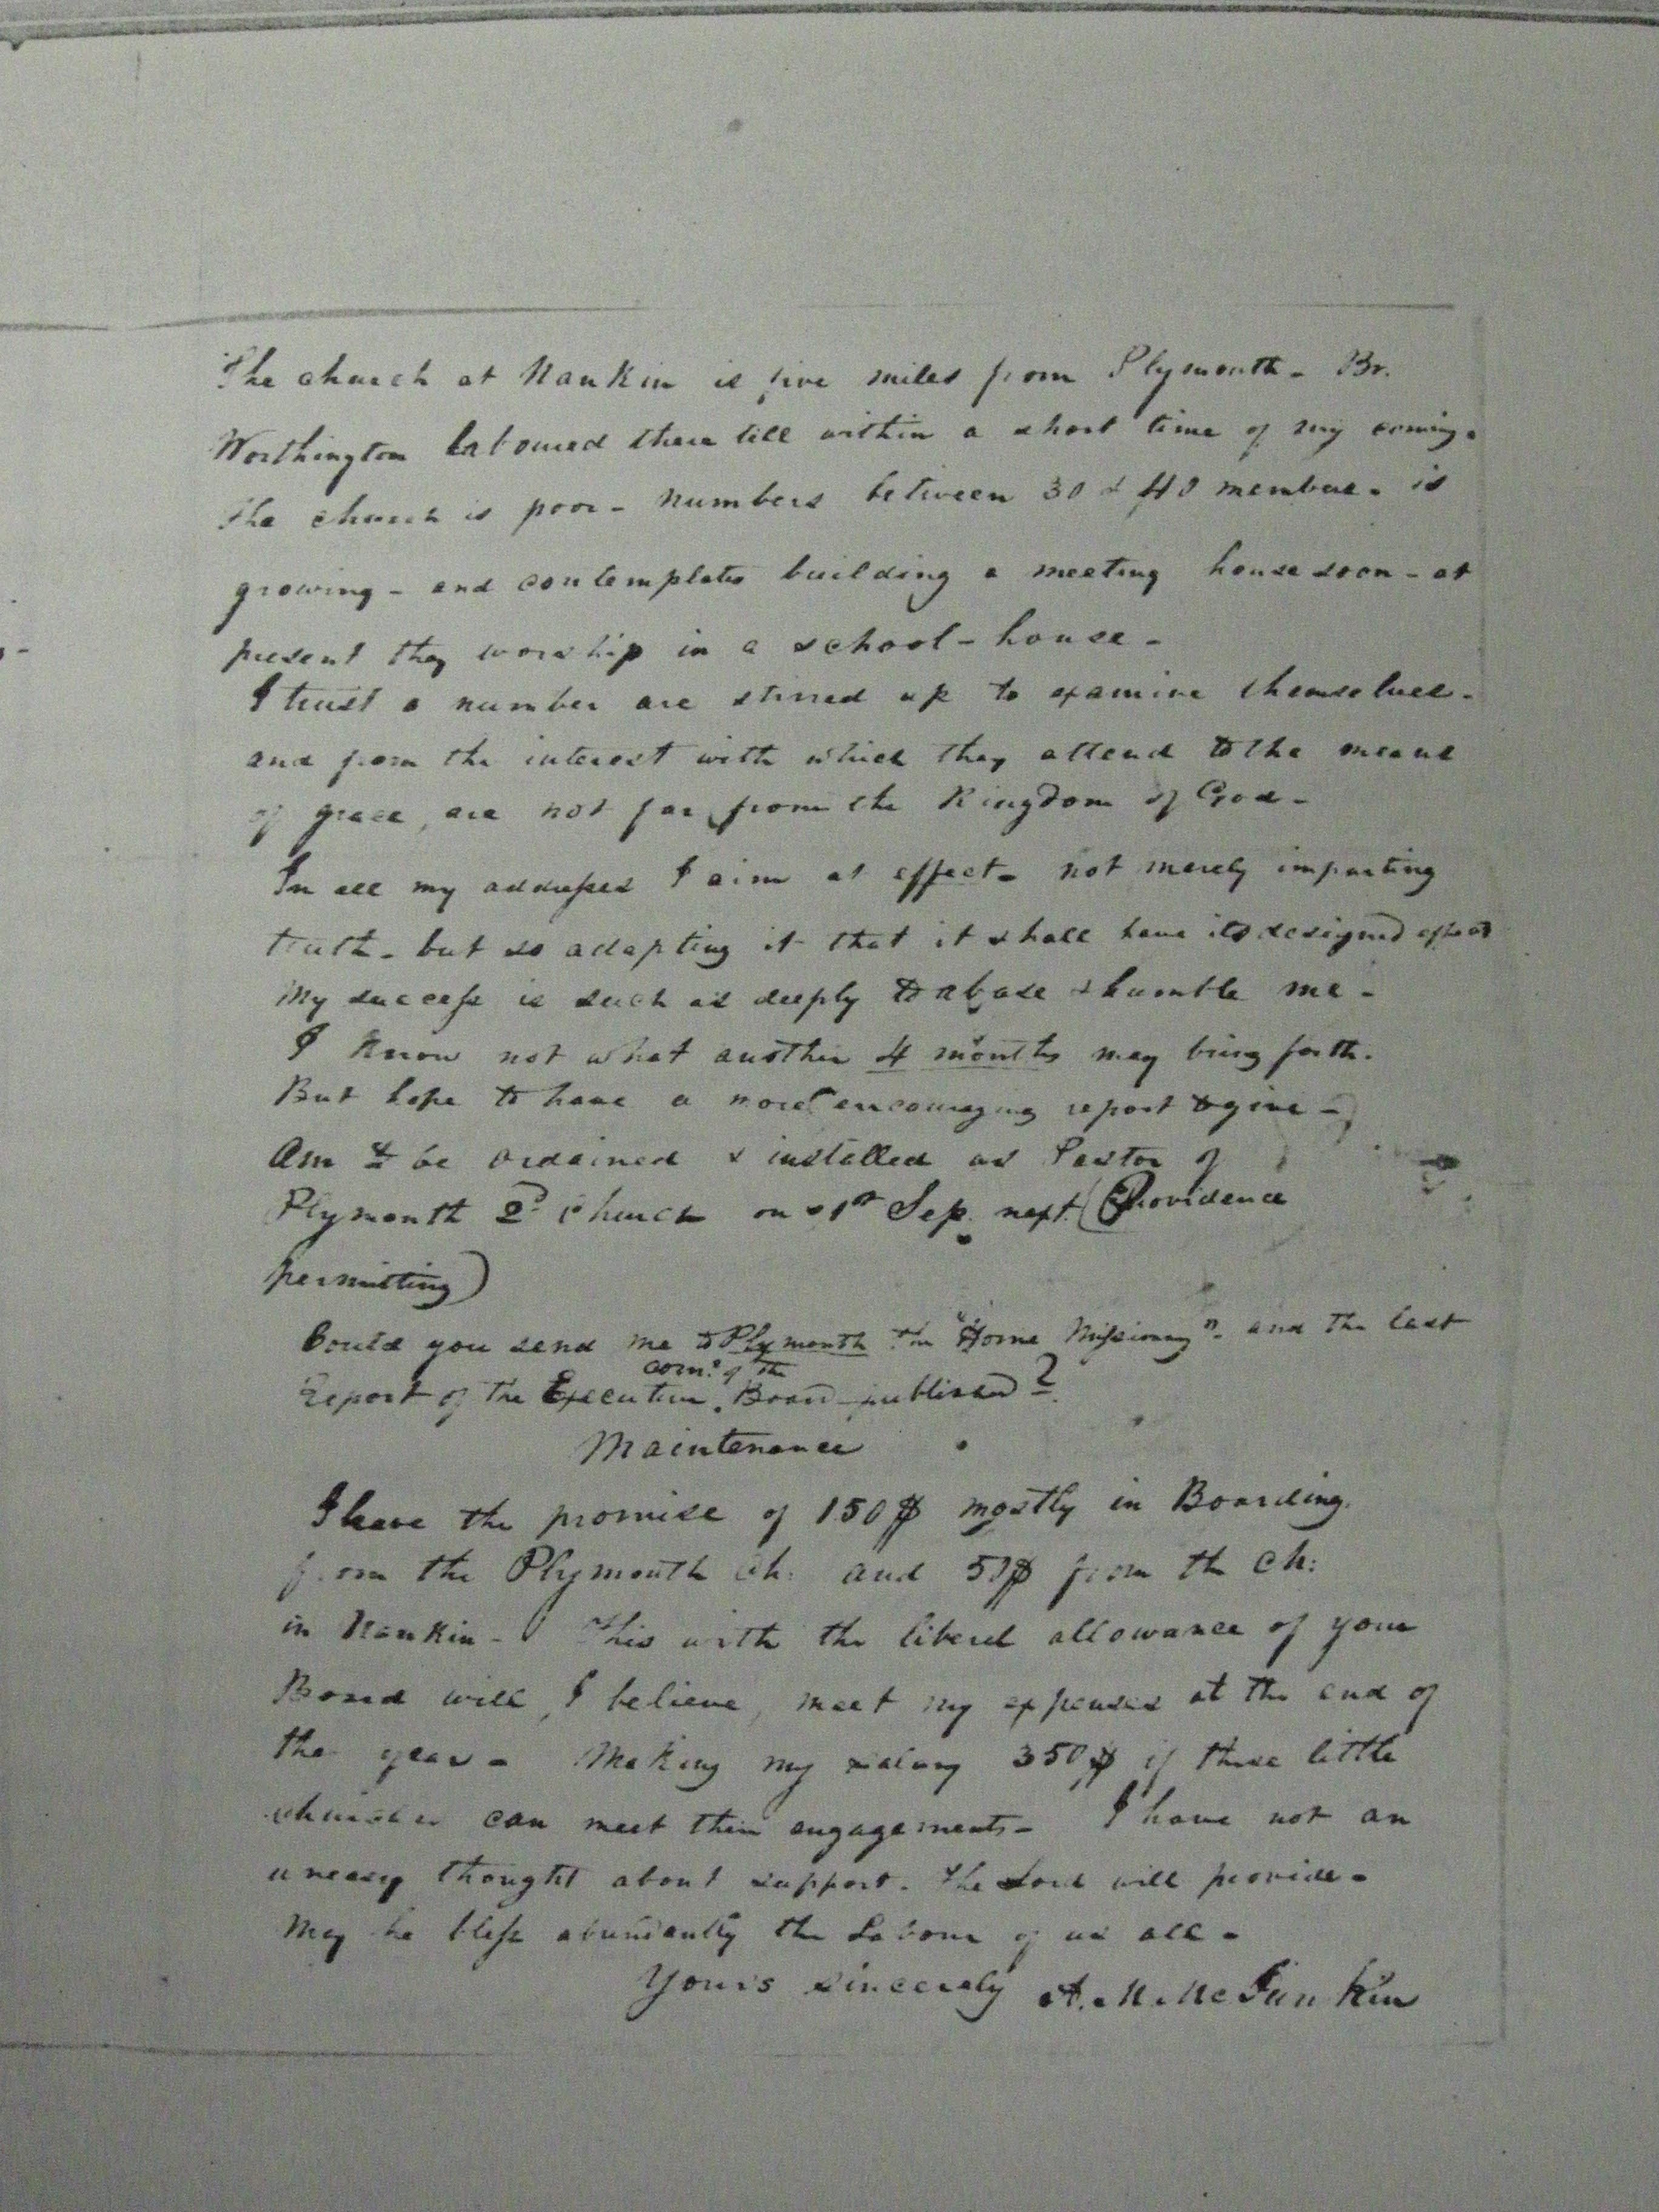 The church at Nankin is five miles from Plymouth - Br.
Worthington laboured there till within a short time of my coming.
the church is poor - numbers between 30 & 40 members. is
growing - and contemplates building a meeting house soon - at
present they worship in a school-house -
I trust a number are stirred up to examine themselves -
and from the interest with which they attend to the means
of grace, are not far from the Kingdom of God -
In all my addresses I aim at effect - not merely imparting
truth - but so adapting it that it shall have its designed effect
My success is such as deeply to abase & humble me -
I know not what another 4 months may bring forth.
But hope to have a more encouraging report to give -
Am to be ordained & installed as Pastor of
Plymouth 2d church on 1st Sep. next (Providence
permitting)
Could you send me to Plymouth the "Home Missionary" - and the last
com: of the
Report of the Executive Board published?
Maintenance
I have the promise of 150$ mostly in Boarding.
from the Plymouth Ch: and 50$ from the Ch:
in Nankin - This with the liberal allowance of your
Board will, I believe, meet my expenses at the end of
the year - Making my salary 350$ if these little
churches can meet their engagements - I have not an
uneasy thought about support. The Lord will provide -
May he bless abundantly the Labour of us all -
Yours sincerely A. M. McJunkin